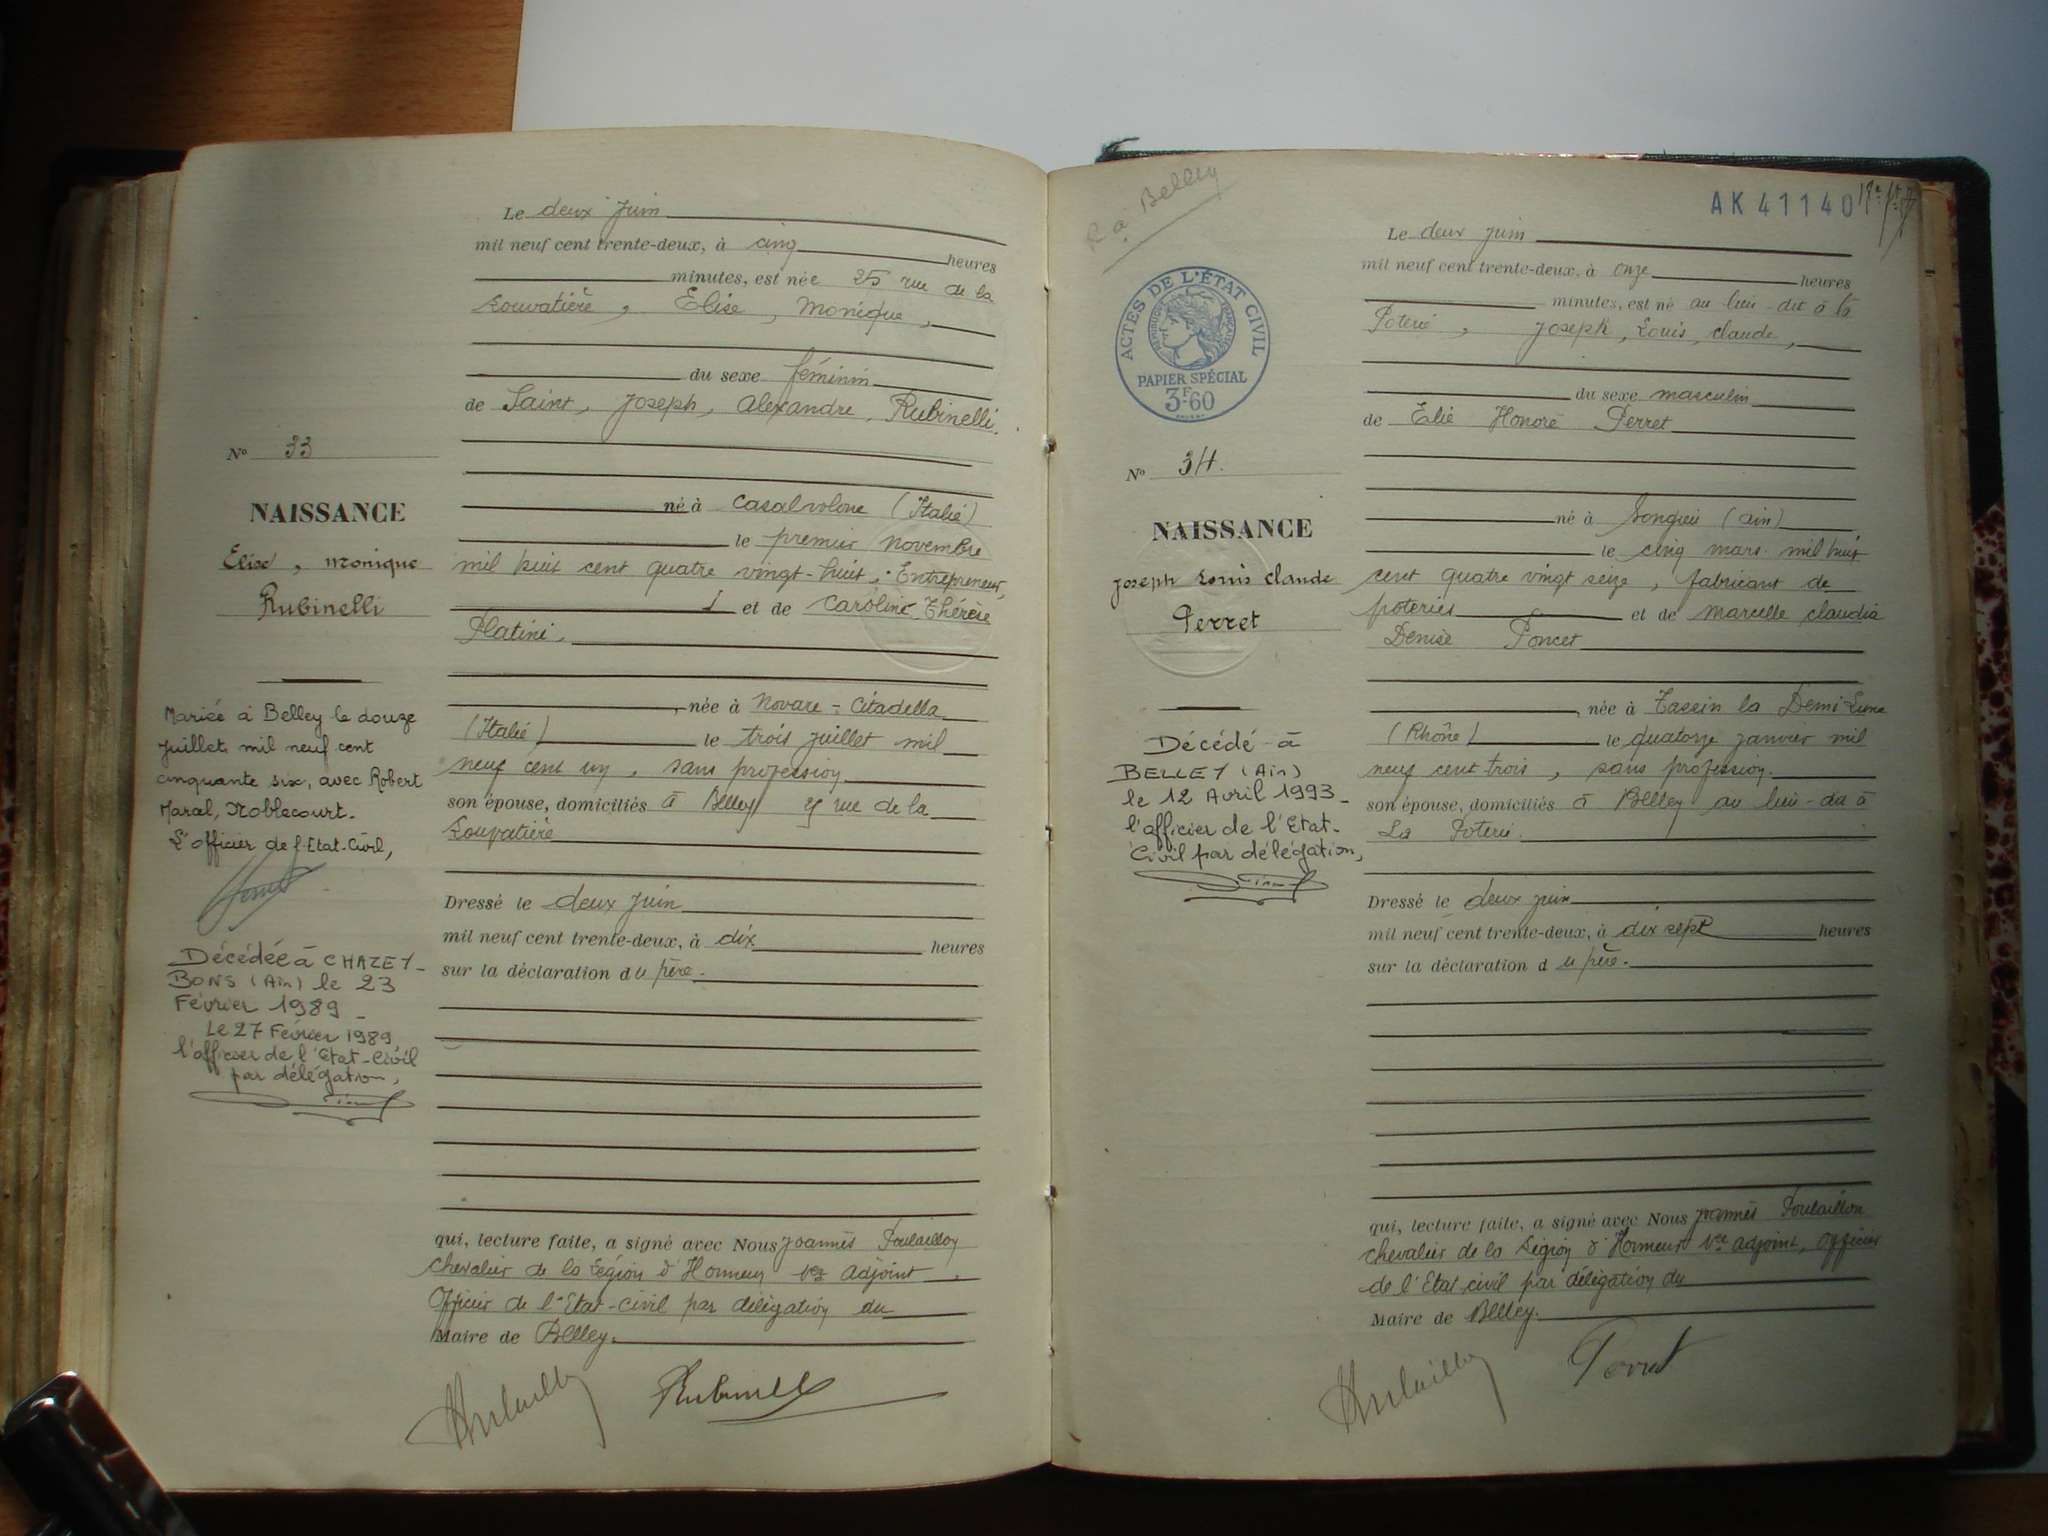 Le deux juin
mil neuf cent trente-deux, à cinq heures
minutes, est née 25 rue de la
Louvatière, Elise, Monique,
du sexe féminin
de Saint, Joseph, Alexandre, Rubinelli.
né à Casalvolone (Italie)
le premier novembre
mil huit cent quatre vingt-huit, Entrepreneur,
et de Caroline Thérèse
Platini,
née à Novare - Citadella
(Italie) le trois juillet mil
neuf cent un, sans profession
son épouse, domiciliés à Belley rue de la
Louvatière
Dressé le deux juin
mil neuf cent trente-deux, à dix heures
sur la déclaration du père.
qui, lecture faite, a signé avec Nous Joannès Poulaillon
chevalier de la Légion d'Honneur adjoint
Officier de l'Etat-civil par délégation du
Maire de Belley.
Rubinelli
No 33
NAISSANCE
Elise, Monique
Rubinelli
Mariée à Belley le douze
juillet mil neuf cent
cinquante six, avec Robert
Noblecourt.
L'officier de l'Etat-Civil,
Décédée à CHAZEY-
BONS (Ain) le 23
Février 1989 -
Le 27 Février 1989
l'officier de l'Etat-Civil
par délégation,
R à Belley
AK 41140
ACTES DE L'ÉTAT CIVIL
RÉPUBLIQUE FRANÇAISE
PAPIER SPÉCIAL
3F.60
No 34.
NAISSANCE
Joseph Louis Claude
Perret
Décédé à
BELLEY (Ain)
le 12 Avril 1993 -
l'officier de l'Etat-
Civil par délégation,
Le deux juin
mil neuf cent trente-deux, à onze heures
minutes, est né au lieu-dit à la
Poterie, Joseph, Louis, Claude,
du sexe masculin
de Elie Honoré Perret
né à Songieu (Ain)
le cinq mars mil huit
cent quatre vingt seize, fabricant de
poteries et de Marcelle Claudia
Denise Poncet
née à Tassin la Demi-Lune
(Rhône) le quatorze janvier mil
neuf cent trois, sans profession.
son épouse, domiciliés à Belley au lieu-dit à
La Poterie.
Dressé le deux juin
mil neuf cent trente-deux, à dix sept heures
sur la déclaration du père.
qui, lecture faite, a signé avec Nous Joannès Poulaillon
chevalier de la Légion d'Honneur adjoint, officier
de l'Etat civil par délégation du
Maire de Belley.
Perret